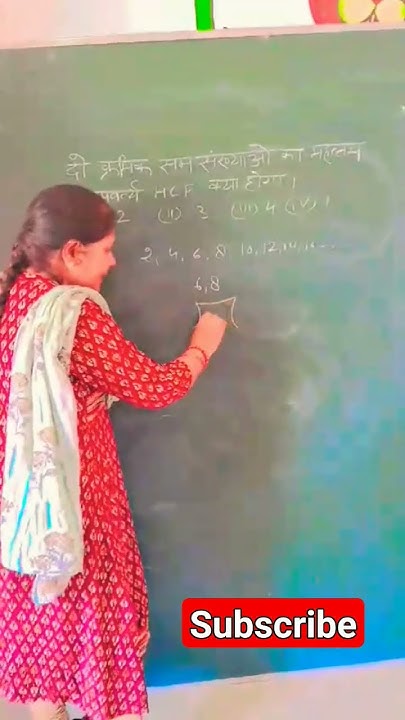 दो क्रमिक सम संख्याओ का महत्तम
HCF क्या होगा।
2 (II) 3 (III) 4 (IV) 1
2, 4, 6, 8, 10, 12, 14, 16 ...
6, 8
Subscribe